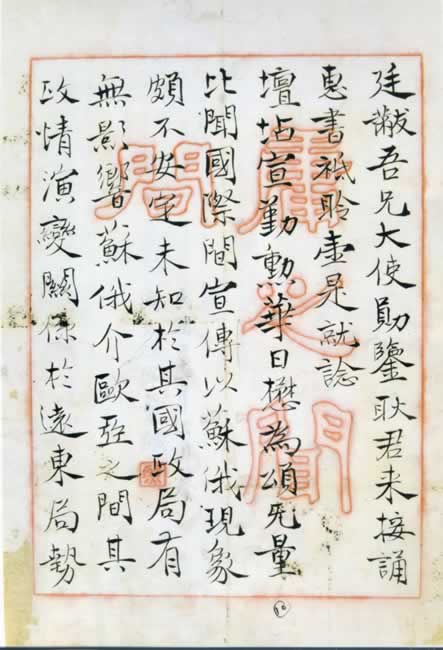 廷黻吾兄大使勛鑒耿君来接誦
惠書祗聆壹是就諗
壇坫宣勤勳華日懋為頌无量
比聞國際間宣傳以蘇俄現象
頗不安定未知於其國政局有
無影響蘇俄介歐亞之間其
政情演變關係於遠東局勢
10